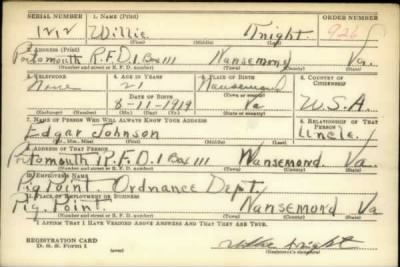 SERIAL NUMBER 1. NAME (Print) ORDER NUMBER
1212 Willie Knight 926
(First) (Middle) (Last)
2. ADDRESS (Print)
Portsmouth R.F.D.1 Box 111 Nansemond Va.
(Number and street or R. F. D. number) (Town) (County) (State)
3. TELEPHONE 4. AGE IN YEARS 5. PLACE OF BIRTH 6. COUNTRY OF CITIZENSHIP
None 21 Nansemond
(Town or county)
DATE OF BIRTH
8-11-1919 Va U.S.A.
(Exchange) (Number) (Mo.) (Day) (Yr.) (State or country)
7. NAME OF PERSON WHO WILL ALWAYS KNOW YOUR ADDRESS 8. RELATIONSHIP OF THAT PERSON
Edgar Johnson Uncle
(Mr., Mrs., Miss) (First) (Middle) (Last)
9. ADDRESS OF THAT PERSON
Portsmouth R.F.D.1 Box 111 Nansemond Va.
(Number and street or R. F. D. number) (Town) (County) (State)
10. EMPLOYER'S NAME
Pig Point. Ordnance Dept.
11. PLACE OF EMPLOYMENT OR BUSINESS
Pig. Point. Nansemond Va
(Number and street or R. F. D. number) (Town) (County) (State)
I AFFIRM THAT I HAVE VERIFIED ABOVE ANSWERS AND THAT THEY ARE TRUE.
REGISTRATION CARD
D. S. S. Form 1 Willie Knight
(Registrant's signature)